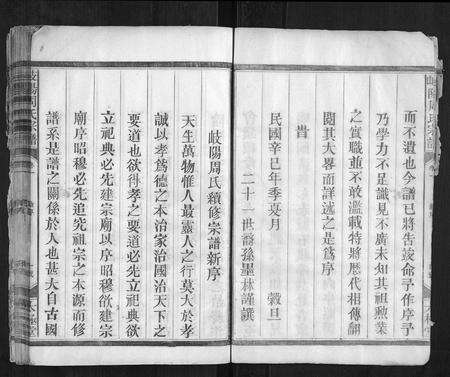 而不遺也今譜已將告竣命予作序予
乃學力不足識見不廣未知其祖勲業
之實職並不敢濫載特將歷代相傳翻
閱其大畧而詳述之是爲序
旹
民國辛巳年季夏月 穀旦
二十一世裔孫墨林謹譔
岐陽周氏續修宗譜新序
天生萬物惟人最靈人之行莫大於孝
誠以孝爲德之本治家治國治天下之
要道也欲得孝之要道必先立祀典欲
立祀典必先建宗廟以序昭穆欲建宗
廟序昭穆必先追究祖宗之本源而修
譜系是譜之關係於人也甚大自古國
岐陽周氏宗譜